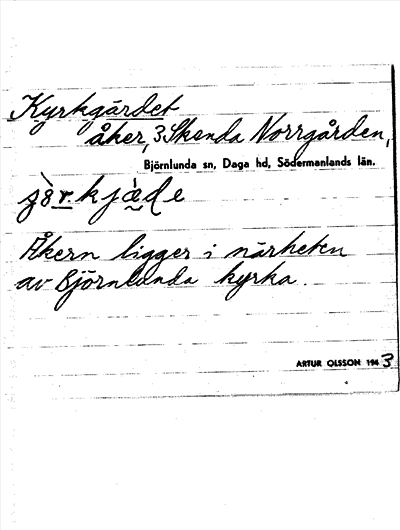 Kyrkgärdet
åker, 3 Skenda Norrgården,
Björnlunda sn, Daga hd, Södermanlands län.
Åkern ligger i närheten
av Björnlunda kyrka.
ARTUR OLSSON 1943